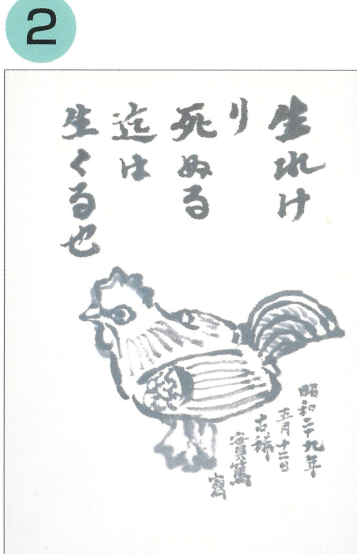 2
生れけ
り
死ぬる
迄は
生くる也
昭和二十九年
五月十二日
古稀
實篤